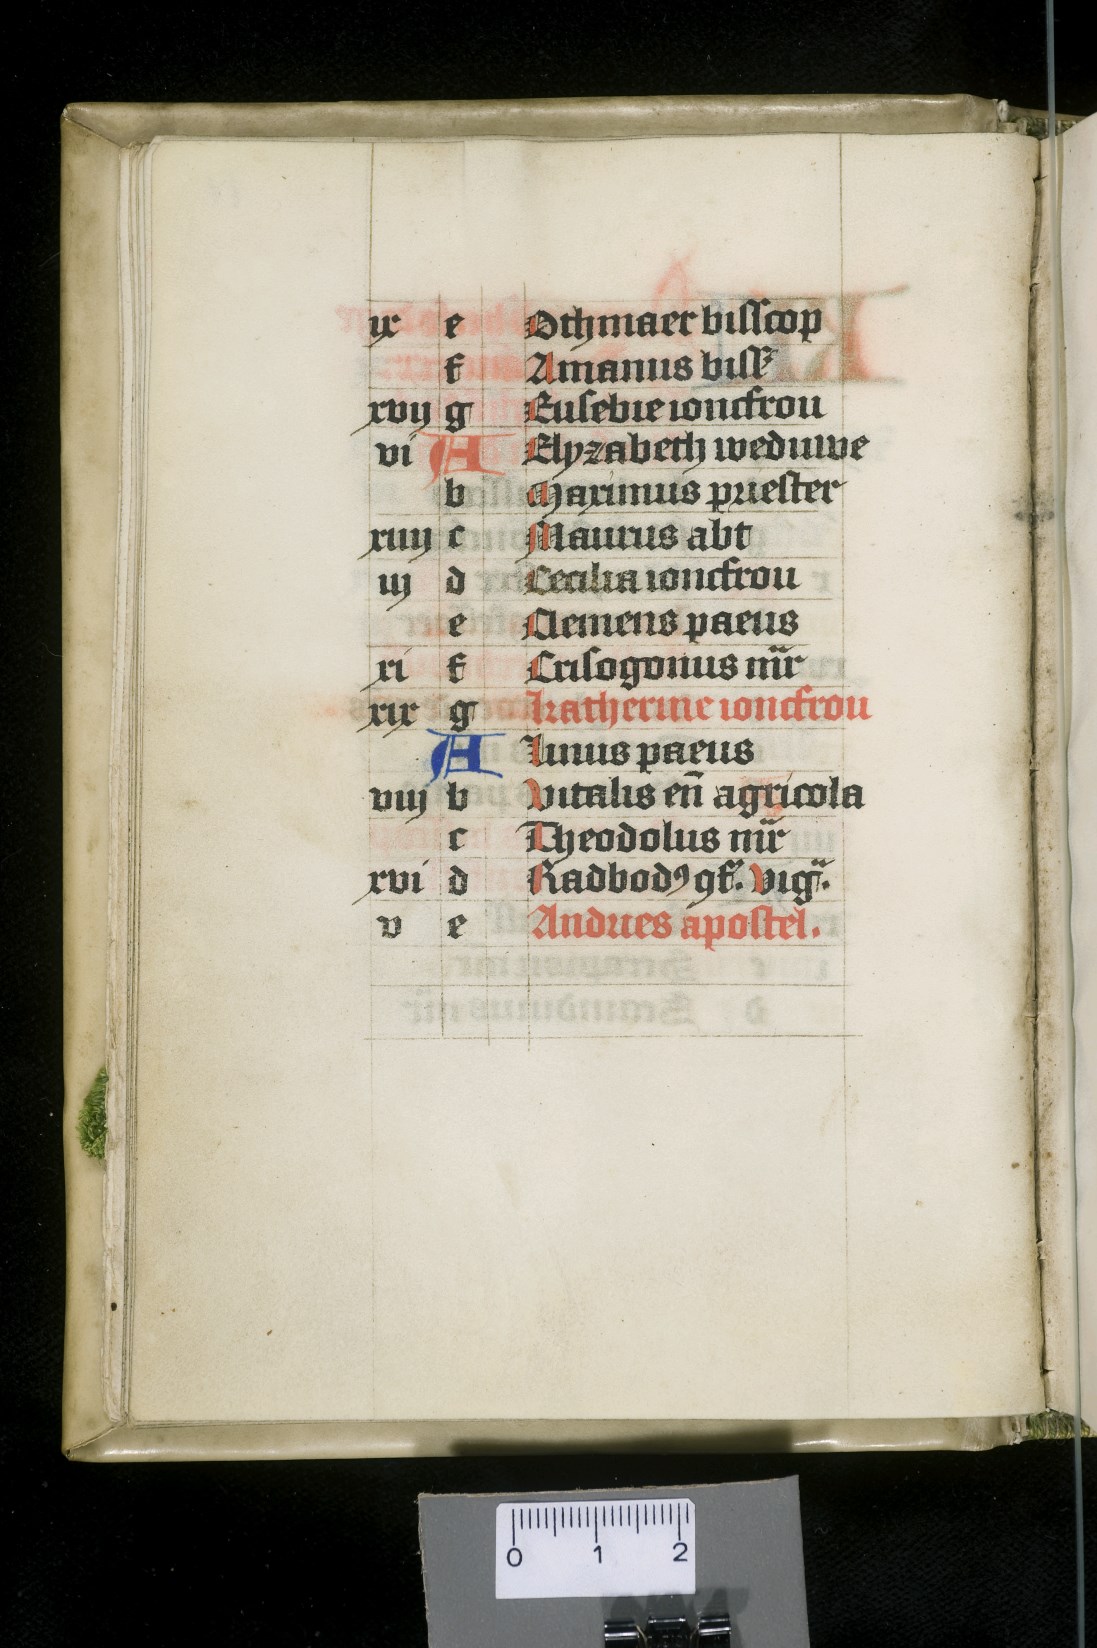 ix e Othmaer bisscop
f Amanus biss
xvij g Eusebie ioncfrou
vi A Elyzabeth weduwe
b Maximus priester
xiiij c Maurus abt
iij d Cecilia ioncfrou
e Clemens paeus
xi f Crisogonus mr
xix g Katherine ioncfrou
A Linus paeus
viij b Vitalis en̄ agricola
c Theodolus mr
xvi d Radbodꝰ ꝯf. vig.
v e Andries apostel.
0 1 2